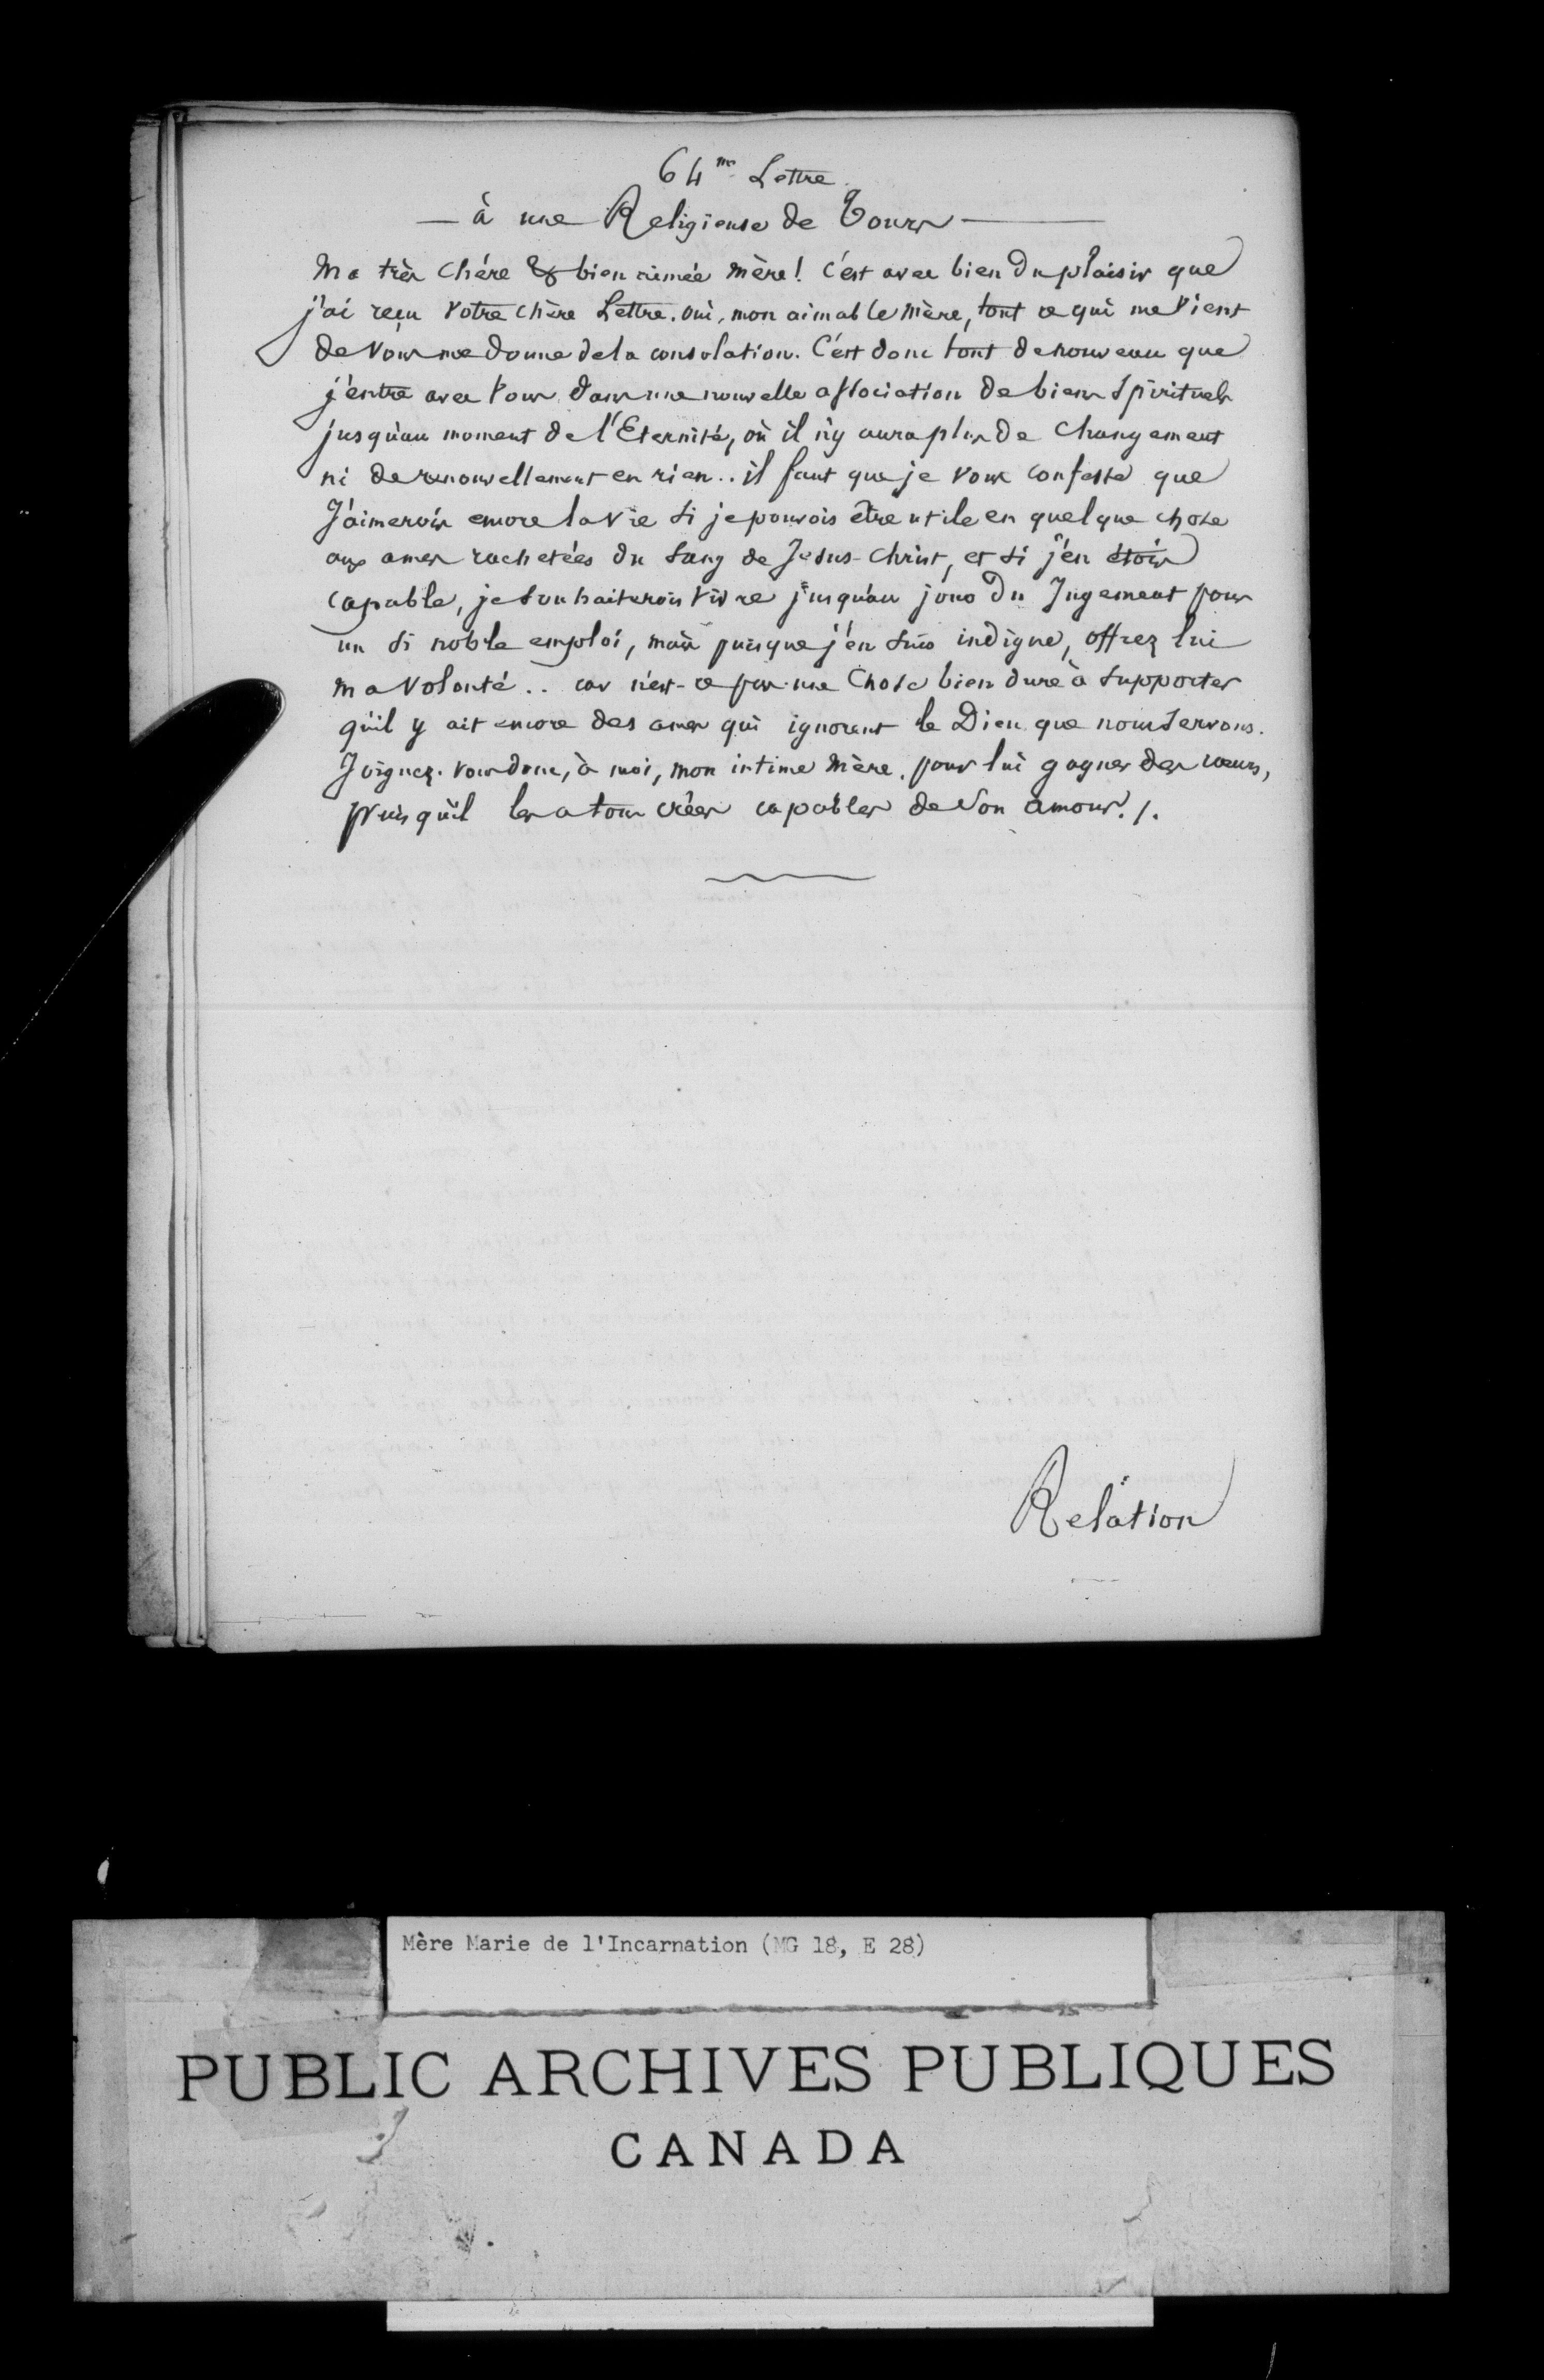 64me Lettre
— à une Religieuse de Tours —
Ma très chére & bien aimée mère! c'est avec bien du plaisir que
j'ai reçu votre chère Lettre. oui, mon aimable mère, tout ce qui me vient
de vous me donne de la consolation. C'est donc tout de nouveau que
j'entre avec vous dans une nouvelle association de biens spirituels
jusqu'au moment de l'Eternité, où il n'y aura plus de changement
ni de renouvellement en rien.. il faut que je vous confesse que
J'aimerois encore la vie si je pouvois être utile en quelque chose
aux ames rachetées du sang de Jesus-Christ, et si j'en étois
capable, je souhaiterois vivre jusqu'au jour du Jugement pour
un si noble emploi, mais puisque j'en suis indigne, offrez lui
ma volonté.. car n'est-ce pas une chose bien dure à supporter
qu'il y ait encore des ames qui ignorent le Dieu que nous servons.
Joignez-vous donc, à moi, mon intime mère. pour lui gagner des cœurs,
puisqu'il les a tous créés capables de son amour. /.
Relation
Mère Marie de l'Incarnation (MG 18, E 28)
PUBLIC ARCHIVES PUBLIQUES
CANADA